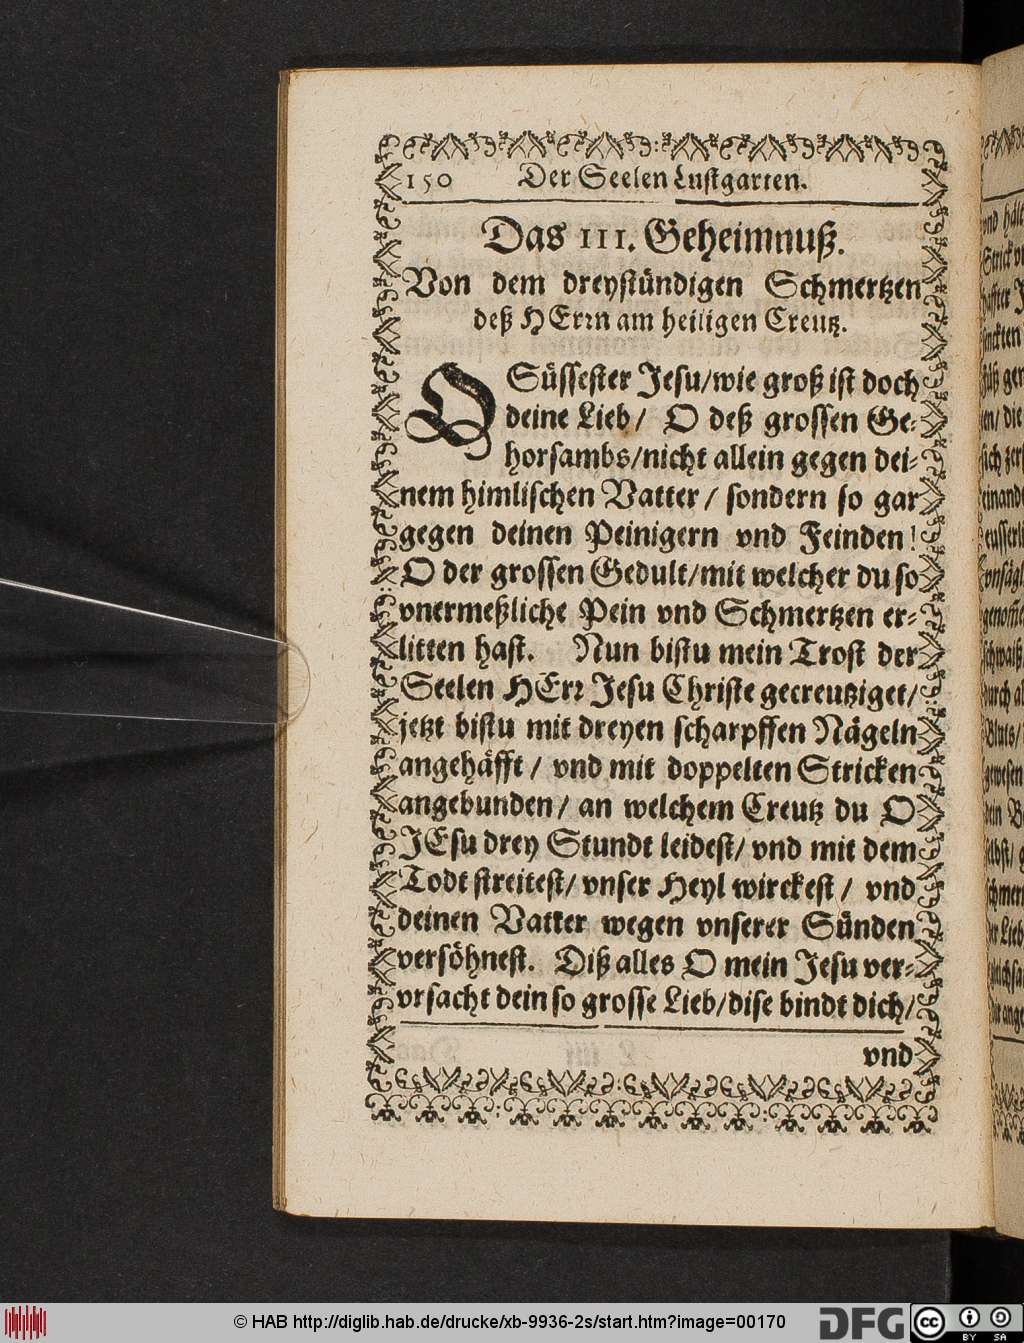 150 Der Seelen Lustgarten.
Das III. Geheimnuß.
Von dem dreystündigen Schmertzen
deß HErrn am heiligen Creutz.
O Süssester Jesu/wie groß ist doch
deine Lieb/ O deß grossen Ge-
horsambs/nicht allein gegen dei-
nem himlischen Vatter/ sondern so gar
gegen deinen Peinigern vnd Feinden!
O der grossen Gedult/mit welcher du so
vnermeßliche Pein vnd Schmertzen er-
litten hast. Nun bistu mein Trost der
Seelen HErr Jesu Christe gecreutziget/
jetzt bistu mit dreyen scharpffen Nägeln
angehäfft/ vnd mit doppelten Stricken
angebunden/ an welchem Creutz du O
JEsu drey Stundt leidest/ vnd mit dem
Todt streitest/ vnser Heyl wirckest/ vnd
deinen Vatter wegen vnserer Sünden
versöhnest. Diß alles O mein Jesu ver-
vrsacht dein so grosse Lieb/dise bindt dich/
vnd
© HAB http://diglib.hab.de/drucke/xb-9936-2s/start.htm?image=00170
DFG
cc BY SA